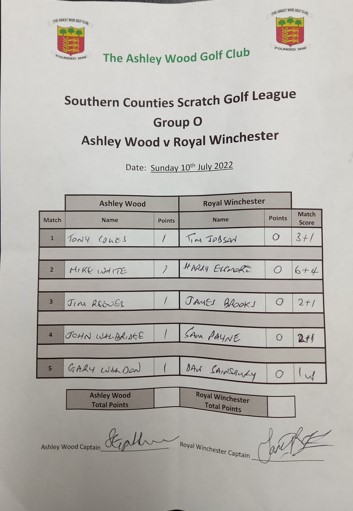 The Ashley Wood Golf Club
Southern Counties Scratch Golf League
Group O
Ashley Wood v Royal Winchester
Date: Sunday 10th July 2022
Ashley Wood Royal Winchester
Match Name Points Name Points Match Score
1 TONY 1 TIM JOBSON 0 3+1
2 MIKE WHITE 1 HARRY 0 6+4
3 JIM 1 JAMES BROOKS 0 2+1
4 JOHN WALBRIDGE 1 SAM PAYNE 0 2+1
5 GARY 1 SAINSBURY 0
Ashley Wood Total Points Royal Winchester Total Points
Ashley Wood Captain Royal Winchester Captain